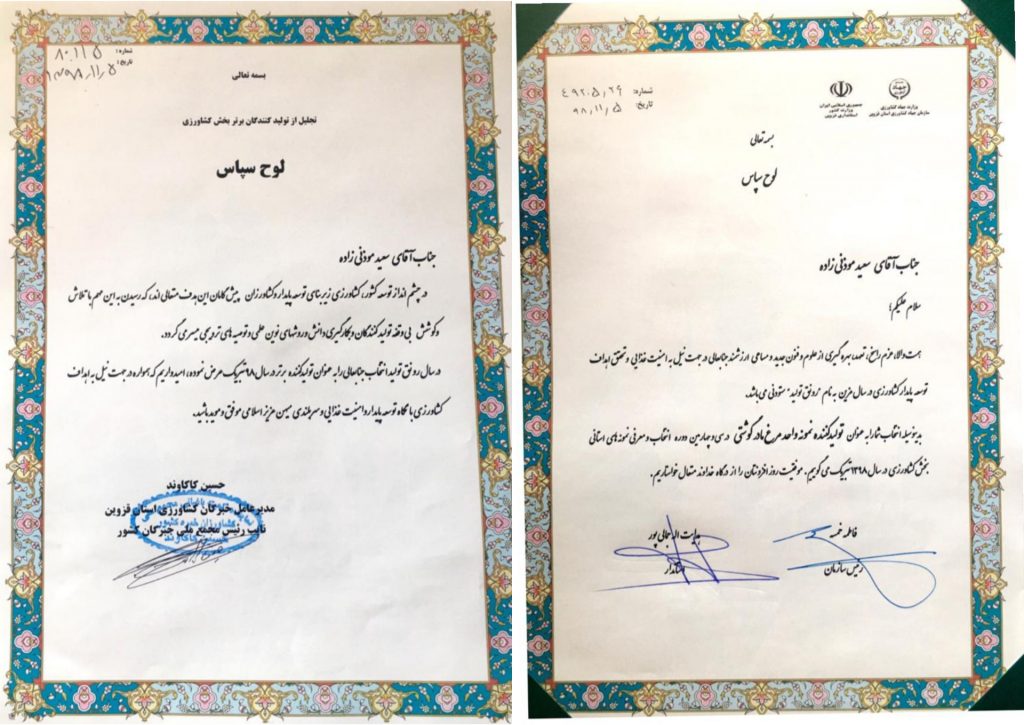 شماره: ۸۰۱۱۵
تاریخ: ۱۳۹۸/۱۱/۵
بسمه تعالی
تجلیل از تولید کنندگان برتر بخش کشاورزی
لوح سپاس
جناب آقای سعید موذنی زاده
در چشم انداز توسعه کشور، کشاورزی زیر بنای توسعه پایدار و کشاورزان پیش گامان این هدف متعالی اند، که رسیدن به این مهم با تلاش
و کوشش بی وقفه تولید کنندگان و بکارگیری دانش و روشهای نوین علمی و توصیه های ترویجی میسر می گردد.
در سال رونق تولید انتخاب جنابعالی را به عنوان تولید کننده برتر در سال ۹۸ تبریک عرض نموده، امیدواریم که همواره در جهت نیل به اهداف
کشاورزی با نگاه توسعه پایدار و امنیت غذایی و سربلندی میهن عزیز اسلامی موفق و موید باشید.
حسین کاکاوند
مدیرعامل خبرگان کشاورزی استان قزوین
نایب رئیس مجمع ملی خبرگان کشور
وزارت جهاد کشاورزی
سازمان جهاد کشاورزی استان قزوین
جمهوری اسلامی ایران
وزارت کشور
استانداری قزوین
شماره: ۴۹۲۰۵/۲۶
تاریخ: ۹۸/۱۱/۵
بسمه تعالی
لوح سپاس
جناب آقای سعید موذنی زاده
سلام علیکم؛
همت والا، عزم راسخ، تعهد، بهره گیری از علوم و فنون جدید و مساعی ارزشمند جنابعالی در جهت نیل به امنیت غذایی و تحقق اهداف
توسعه پایدار کشاورزی در سال مزین به نام "رونق تولید" ستودنی می باشد.
بدینوسیله انتخاب شما را به عنوان تولیدکننده نمونه واحد مرغ مادر گوشتی در سی و چهارمین دوره انتخاب و معرفی نمونه های استانی
بخش کشاورزی در سال ۱۳۹۸ تبریک می گوییم. موفقیت روز افزونتان را از درگاه خداوند متعال خواستاریم.
فاطمه خمسه
رئیس سازمان
هدایت اله جمالی پور
استاندار